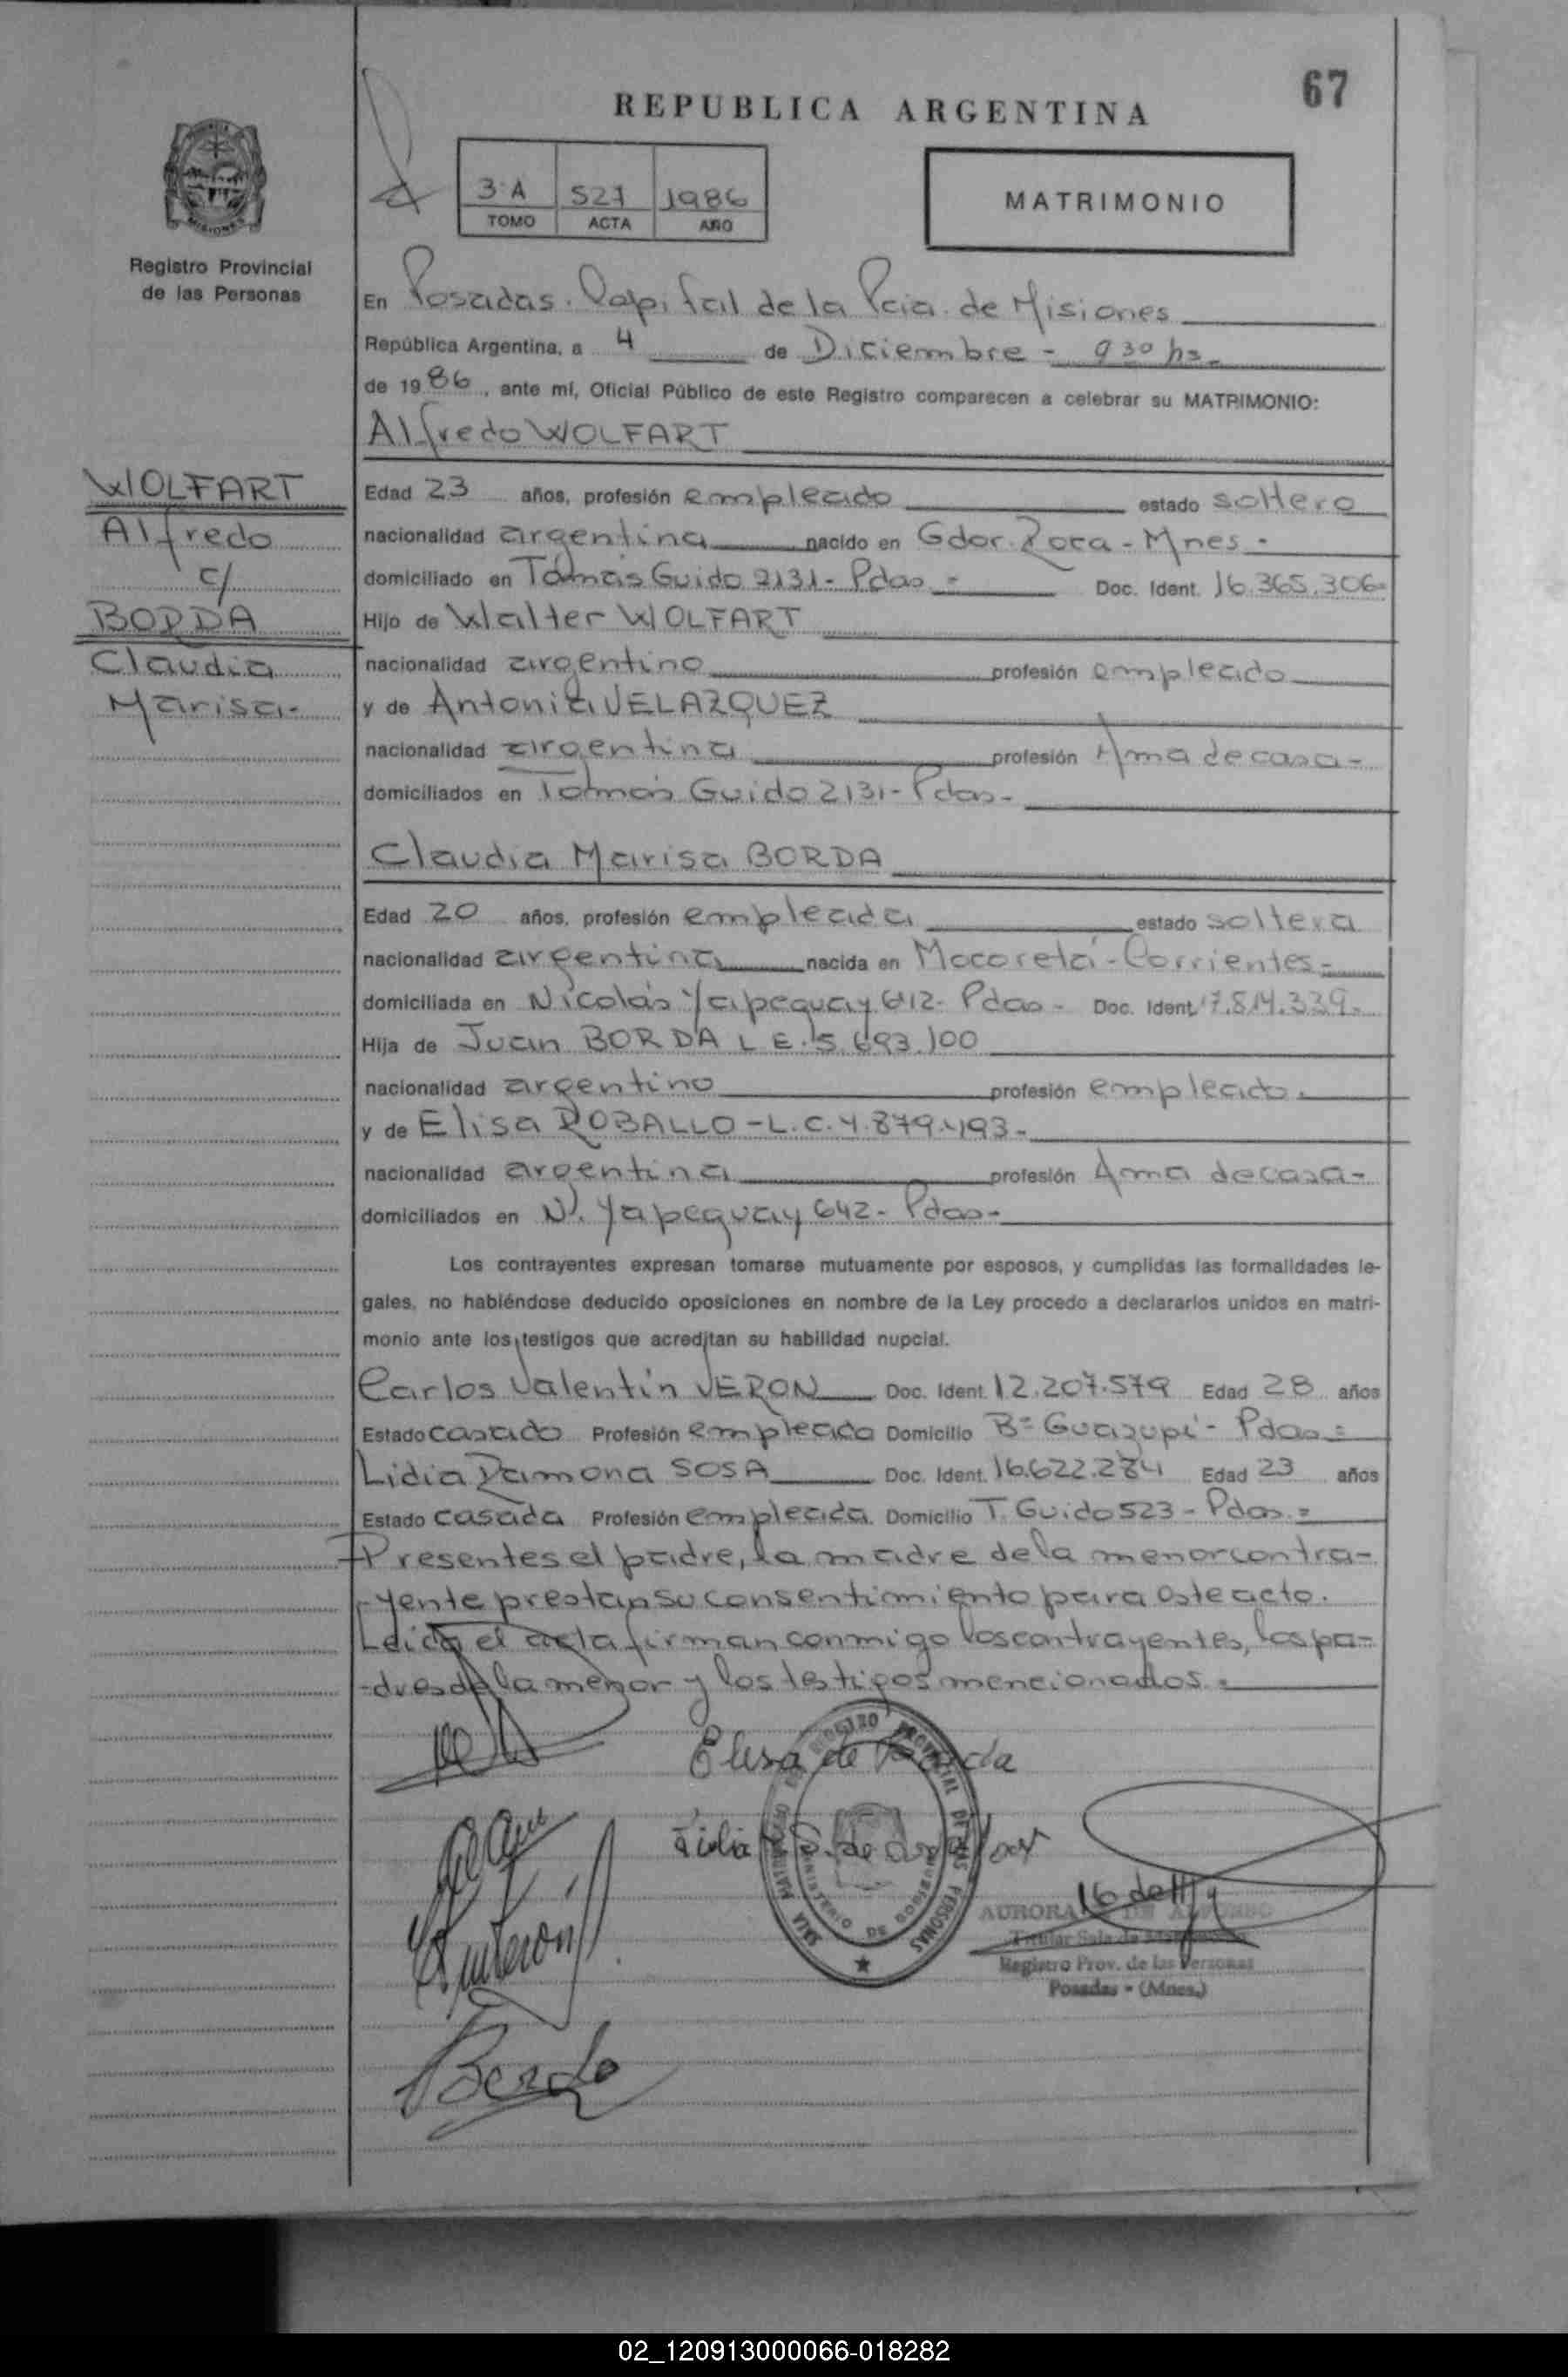 67
REPUBLICA ARGENTINA
3ª A 527 1986
TOMO ACTA AÑO
MATRIMONIO
MISIONES
Registro Provincial
de las Personas
En Posadas. Capital de la Pcia. de Misiones
República Argentina, a 4 de Diciembre - 9 30 hs.
de 19 86, ante mí, Oficial Público de este Registro comparecen a celebrar su MATRIMONIO:
Alfredo WOLFART
WOLFART
Alfredo
c/
BORDA
Claudia
Marisa-
Edad 23 años, profesión empleado estado soltero
nacionalidad argentina nacido en Gdor. Roca - Mnes -
domiciliado en Tomás Guido 2131- Pdas - Doc. Ident. 16.365.306-
Hijo de Walter WOLFART
nacionalidad argentino profesión empleado
y de Antonia VELAZQUEZ
nacionalidad argentina profesión Ama de casa -
domiciliados en Tomás Guido 2131- Pdas-
Claudia Marisa BORDA
Edad 20 años, profesión empleada estado soltera
nacionalidad argentina nacida en Mocoretá - Corrientes-
domiciliada en Nicolás Yapeguay 642- Pdas - Doc. Ident. 17.814.339-
Hija de Juan BORDA L E. 5.693.100
nacionalidad argentino profesión empleado.
y de Elisa ROBALLO - L.C. 4.879.493-
nacionalidad argentina profesión Ama de casa-
domiciliados en N. Yapeguay 642- Pdas-
Los contrayentes expresan tomarse mutuamente por esposos, y cumplidas las formalidades le-
gales, no habiéndose deducido oposiciones en nombre de la Ley procedo a declararlos unidos en matri-
monio ante los testigos que acreditan su habilidad nupcial.
Carlos Valentín VERON Doc. Ident. 12.207.579 Edad 28 años
Estado casado Profesión empleado Domicilio Bº Guazupí - Pdas-
Lidia Ramona SOSA Doc. Ident. 16.622.284 Edad 23 años
Estado casada Profesión empleada Domicilio T. Guido 523 - Pdas.-
Presentes el padre, la madre de la menor contra-
-yente prestan su consentimiento para este acto.
Leida el acta firman conmigo los contrayentes, los pa-
-dres de la menor y los testigos mencionados.-
Elisa de Borda
Lidia S. de
REGISTRO PROVINCIAL DE LAS PERSONAS
SALA MATRIMONIO
MINISTERIO DE GOBIERNO
AURORA
Titular Sala de
Registro Prov. de las Personas
Posadas - (Mnes.)
Borda
02_120913000066-018282